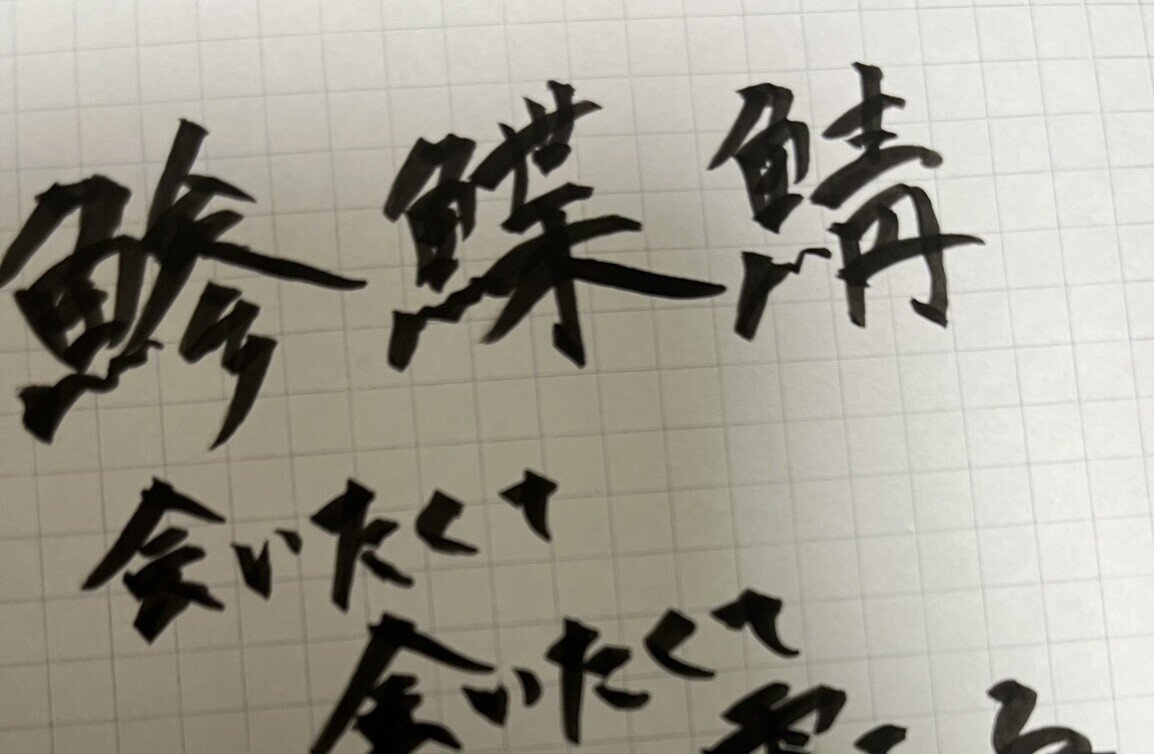 鯵鰈鯖
会いたくて
会いたくて